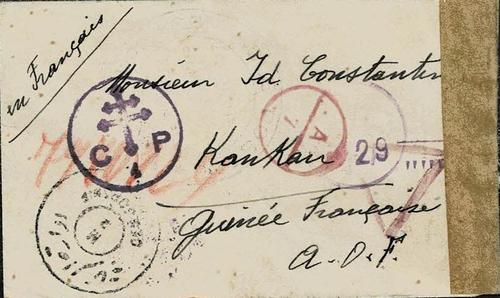 en Français
Monsieur Id. Constantin
C P
4
A
29
KanKan
Guinée Française
A.O.F.